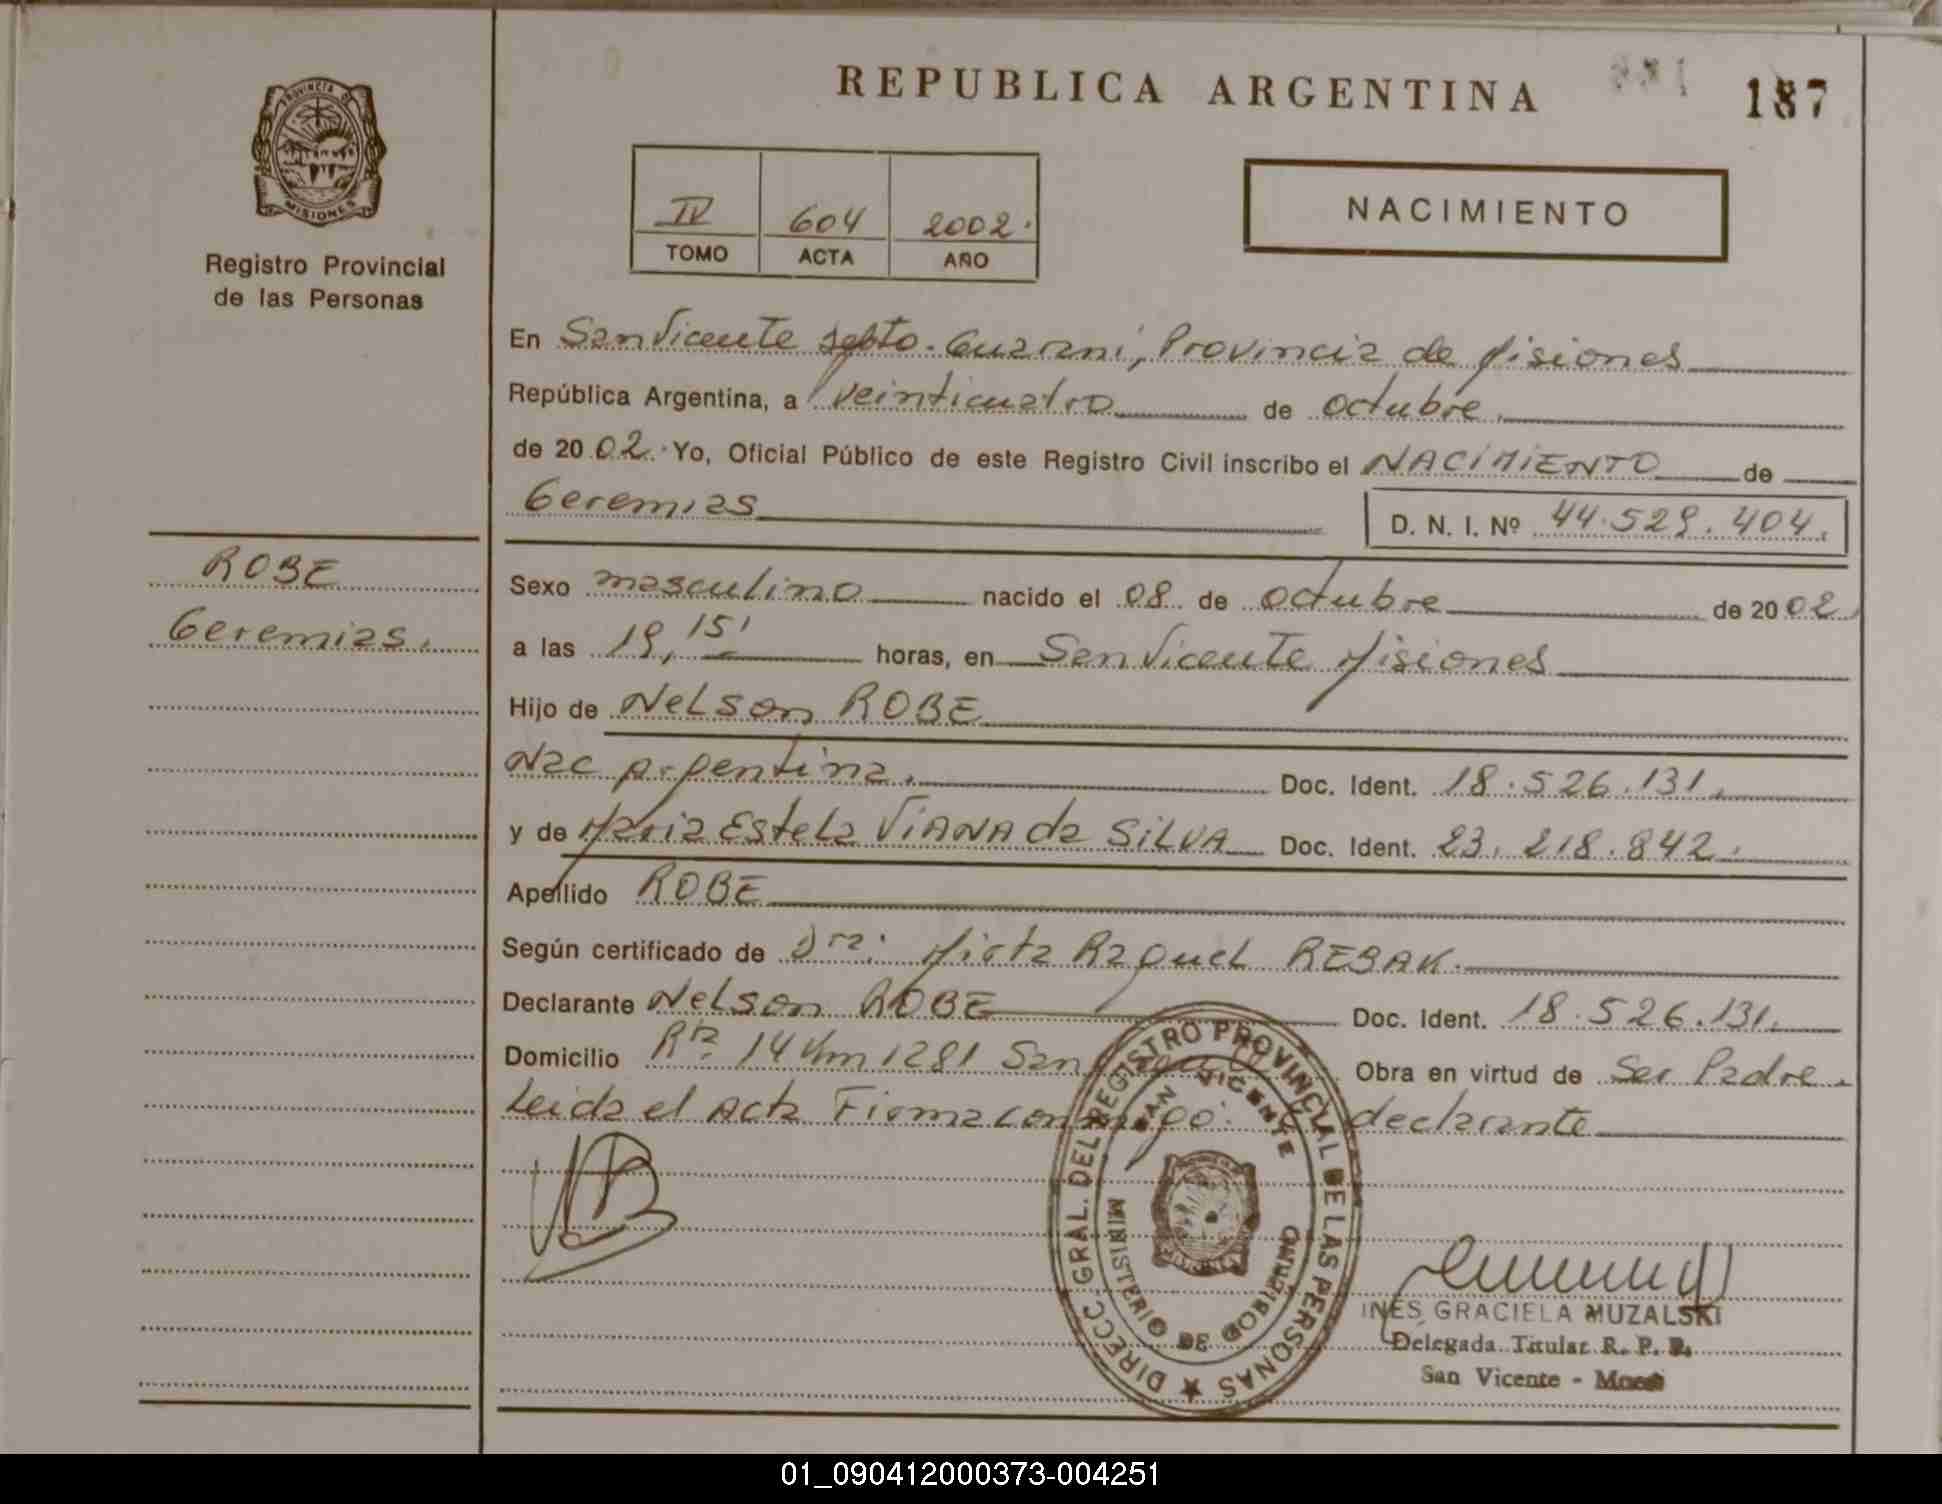 REPUBLICA ARGENTINA
187
PROVINCIA DE
MISIONES
Registro Provincial
de las Personas
IV 604 2002.
TOMO ACTA AÑO
NACIMIENTO
En San Vicente Dpto. Guarani, Provincia de Misiones
República Argentina, a veinticuatro de octubre.
de 2002. Yo, Oficial Público de este Registro Civil inscribo el NACIMIENTO de
Geremias D. N. I. Nº 44.529.404.
ROBE
Geremias.
Sexo masculino nacido el 08 de octubre de 2002.
a las 19,15' horas, en San Vicente Misiones
Hijo de Nelson ROBE
Nac Argentina. Doc. Ident. 18.526.131.
y de Maria Estela VIANA da SILVA Doc. Ident. 23.218.842.
Apellido ROBE
Según certificado de Dra: Mirta Raquel REBAK.
Declarante Nelson ROBE Doc. Ident. 18.526.131.
Domicilio Rta 14 Km 1281 San Obra en virtud de Ser Padre.
Leida el Acta Firma conmigo: el declarante
DIRECC. GRAL. DEL REGISTRO PROVINCIAL DE LAS PERSONAS
SAN VICENTE
MINISTERIO DE GOBIERNO
INES GRACIELA MUZALSKI
Delegada Titular R. P. P.
San Vicente - Mnes
01_090412000373-004251